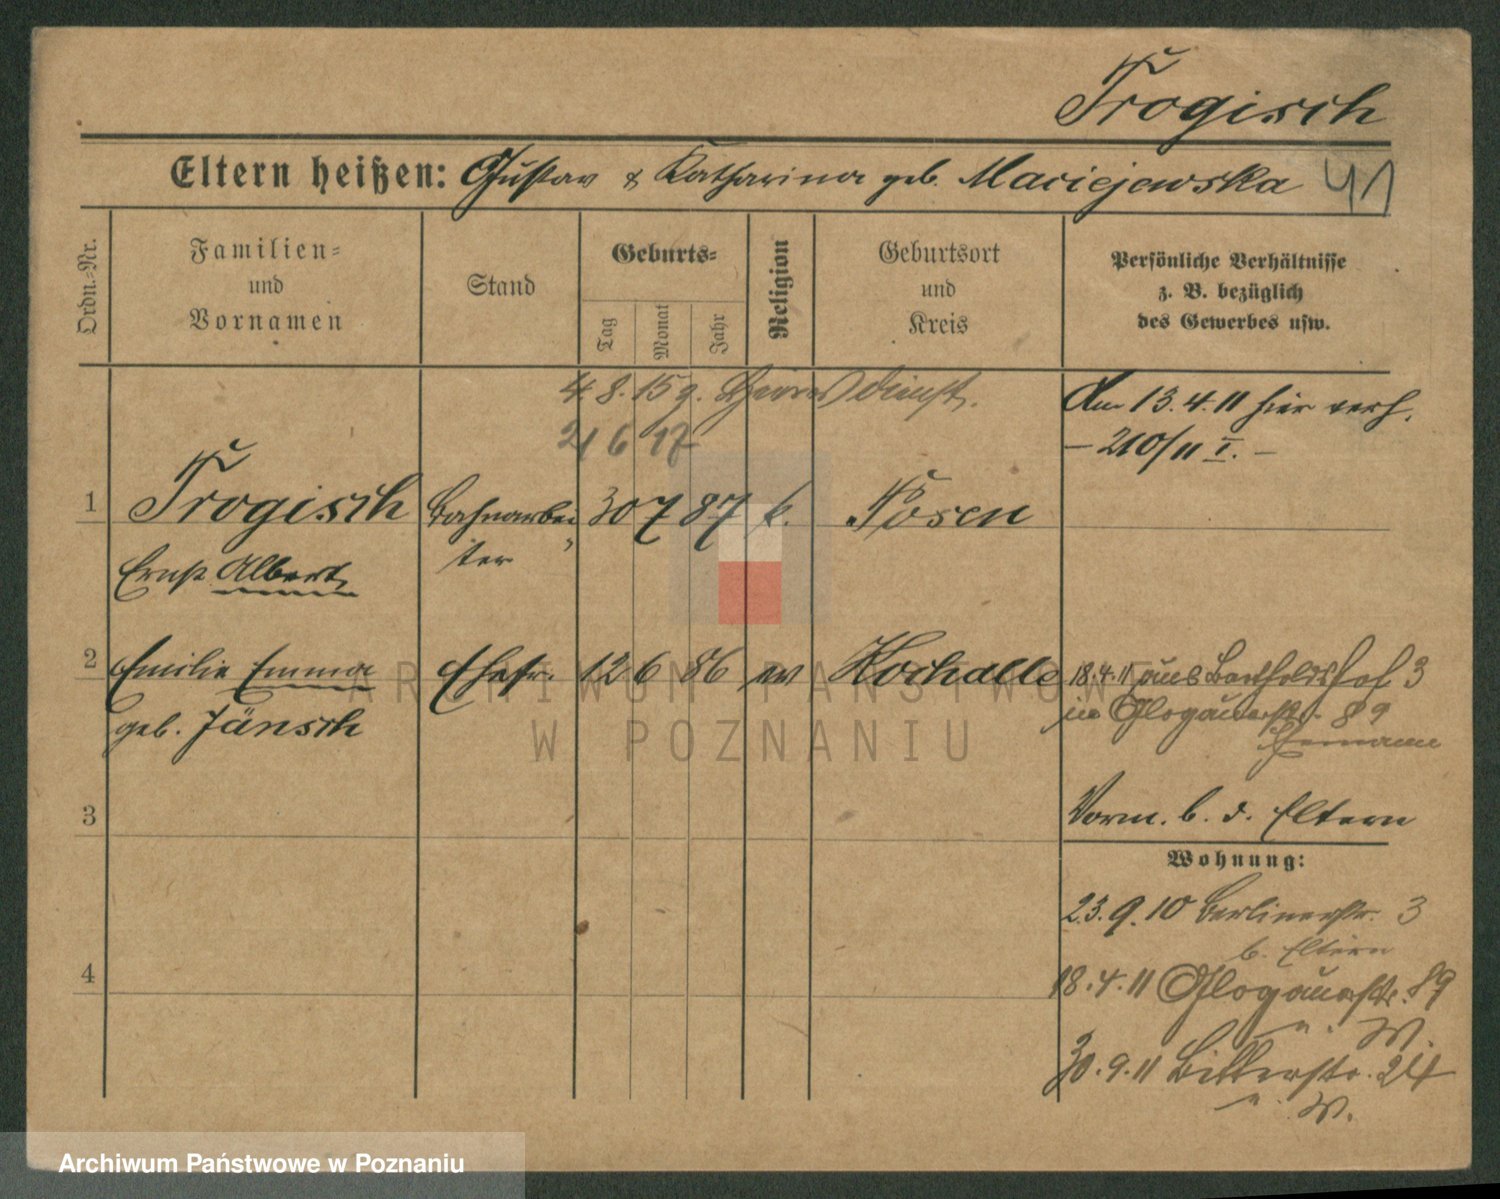 Trogisch
Eltern heißen: Gustav & Katharina geb. Maciejewska
Ordn.-Nr.
Familien- und Vornamen
Stand
Geburts-
Tag
Monat
Jahr
Religion
Geburtsort und Kreis
Persönliche Verhältnisse
z. B. bezüglich
des Gewerbes usw.
4. 8. 15 z. Heeresdienst.
21 6 17
Am 13.4.11 hier verh.
– 210/11 I. –
1 Trogisch Bahnarbei 30 7 87 k. Posen
ter
Ernst Albert
2 Emilie Emma Ehefr. 12 6 86 ev
geb. Jänsch
18.4.11 aus Bartholdshof 3
in Glogauerstr. 89
Vorm. b. d. Eltern
3
Wohnung:
23.9.10 Berlinerstr. 3
b. Eltern
4
18.4.11 Glogauerstr. 89
30.9.11 24
ARCHIWUM PAŃSTWOWE
W POZNANIU
Archiwum Państwowe w Poznaniu